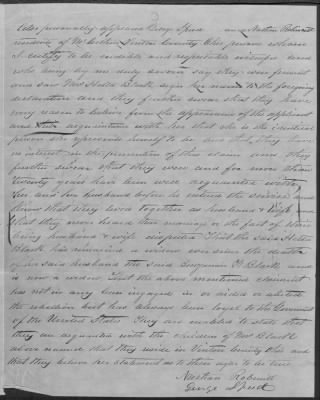 Also personally appeared George Speed and Nathan Robinett
residents of McArthur Vinton County Ohio persons whom
I certify to be credible and respectable witnesses and
who being by me duly sworn say they were present
and saw Mrs Black sign her name to the foregoing
declaration and they further swear that they have
every reason to believe from the appearance of the applicant
and their acquaintance with her that she is the identical
person she represents herself to be and that they have
no interest in the prosecution of this claim and they
further swear that they were and for more than
twenty years have been well acquainted with
her and her husband before he entered the service and
know that they lived together as husband & wife and
that they never heard their marriage or the fact of their
being husband & wife disputed That the said
Black has remained a widow ever since the death
of her said husband the said Benjamin Black and
is now a widow That the above mentioned claimant
has not in any way engaged in or aided or abetted
the rebellion but has always been loyal to the Government
of the United States They are enabled to state that
they are acquainted with the children of Mrs Black
above named that they reside in Vinton County Ohio and
that they believe her statement as to their ages to be true
Nathan Robinett
George Speed